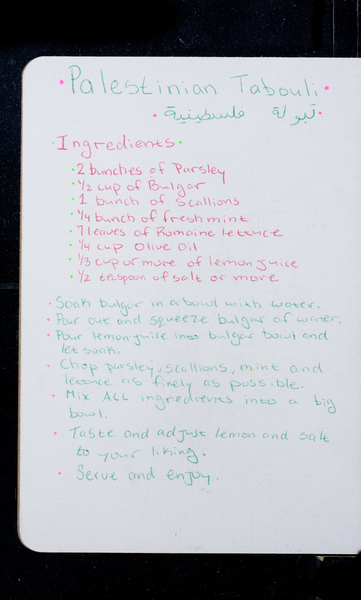 • Palestinian Tabouli •
• تبولة فلسطينية •
• Ingredients •
• 2 bunches of Parsley
• 1/2 cup of Bulgar
• 1 bunch of Scallions
• 1/4 bunch of fresh mint
• 7 leaves of Romaine lettuce
• 1/4 cup Olive Oil
• 1/3 cup or more of lemon juice
• 1/2 teaspoon of salt or more
• Soak bulgar in a bowl with water.
• Pour out and squeeze bulgar of water.
• Pour lemon juice into bulgar bowl and
let soak.
• Chop parsley, scallions, mint and
lettuce as finely as possible.
• Mix ALL ingredients into a big
bowl.
• Taste and adjust lemon and salt
to your liking.
• Serve and enjoy.